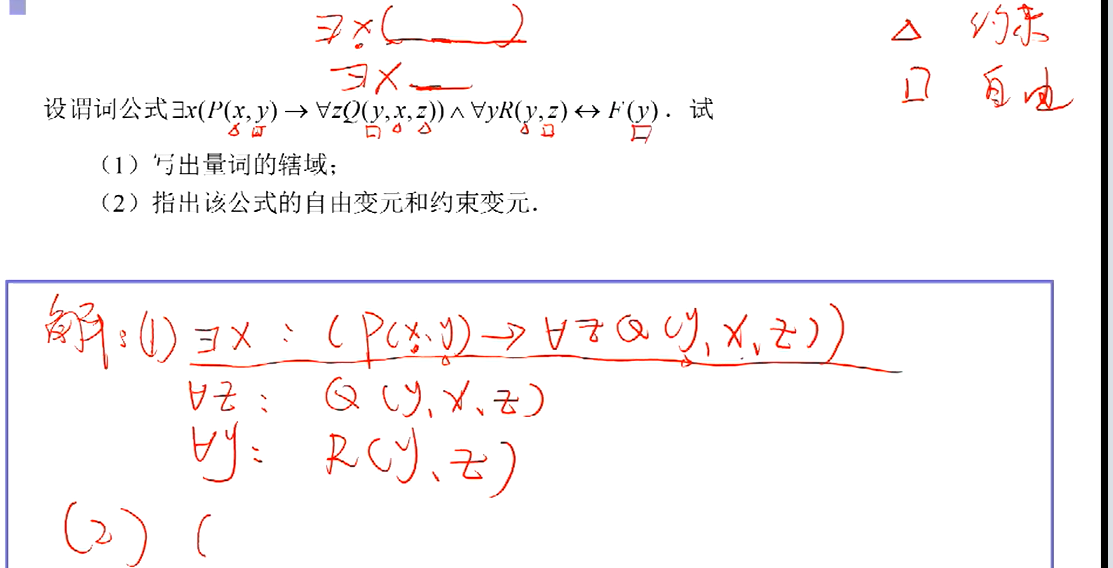 ∃x(____)
△ 约束
∃x __
□ 自由
设谓词公式∃x(P(x,y)→∀zQ(y,x,z))∧∀yR(y,z)↔F(y). 试
(1) 写出量词的辖域;
(2) 指出该公式的自由变元和约束变元.
解:(1) ∃x: (P(x,y)→∀zQ(y,x,z))
∀z: Q(y,x,z)
∀y: R(y,z)
(2) (